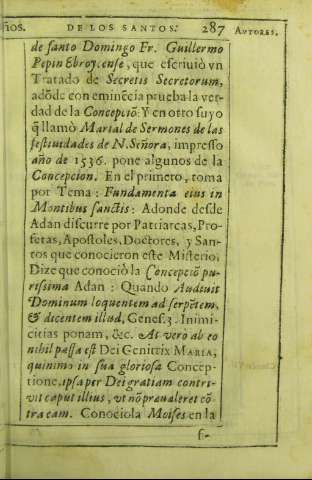 ños. DE LOS SANTOS. 287 AUTORES.
de santo Domingo Fr. Guillermo
Pepin Ebroycense, que escriuiò vn
Tratado de Secretis Secretorum,
adõde con eminẽcia prueba la ver-
dad de la Concepciõ: Y en otro suyo
q̃ llamò Marial de Sermones de las
festiuidades de N. Señora, impresso
año de 1536. pone algunos de la
Concepcion. En el primero, toma
por Tema: Fundamenta eius in
Montibus sanctis: Adonde desde
Adan discurre por Patriarcas, Pro-
fetas, Apostoles, Doctores, y San-
tos que conocieron este Misterio.
Dize que conociò la Concepciõ pu-
rissima Adan: Quando Audiuit
Dominum loquentem ad serpẽtem,
& dicentem illud, Genes. 3. Inimi-
citias ponam, &c. At vero ab eo
nihil passa est Dei Genitrix MARIA,
quinimo in sua gloriosa Concep-
tione, ipsa per Dei gratiam contri-
vit caput illius, vt nõ præualeret cõ-
tra eam. Conociola Moises en la